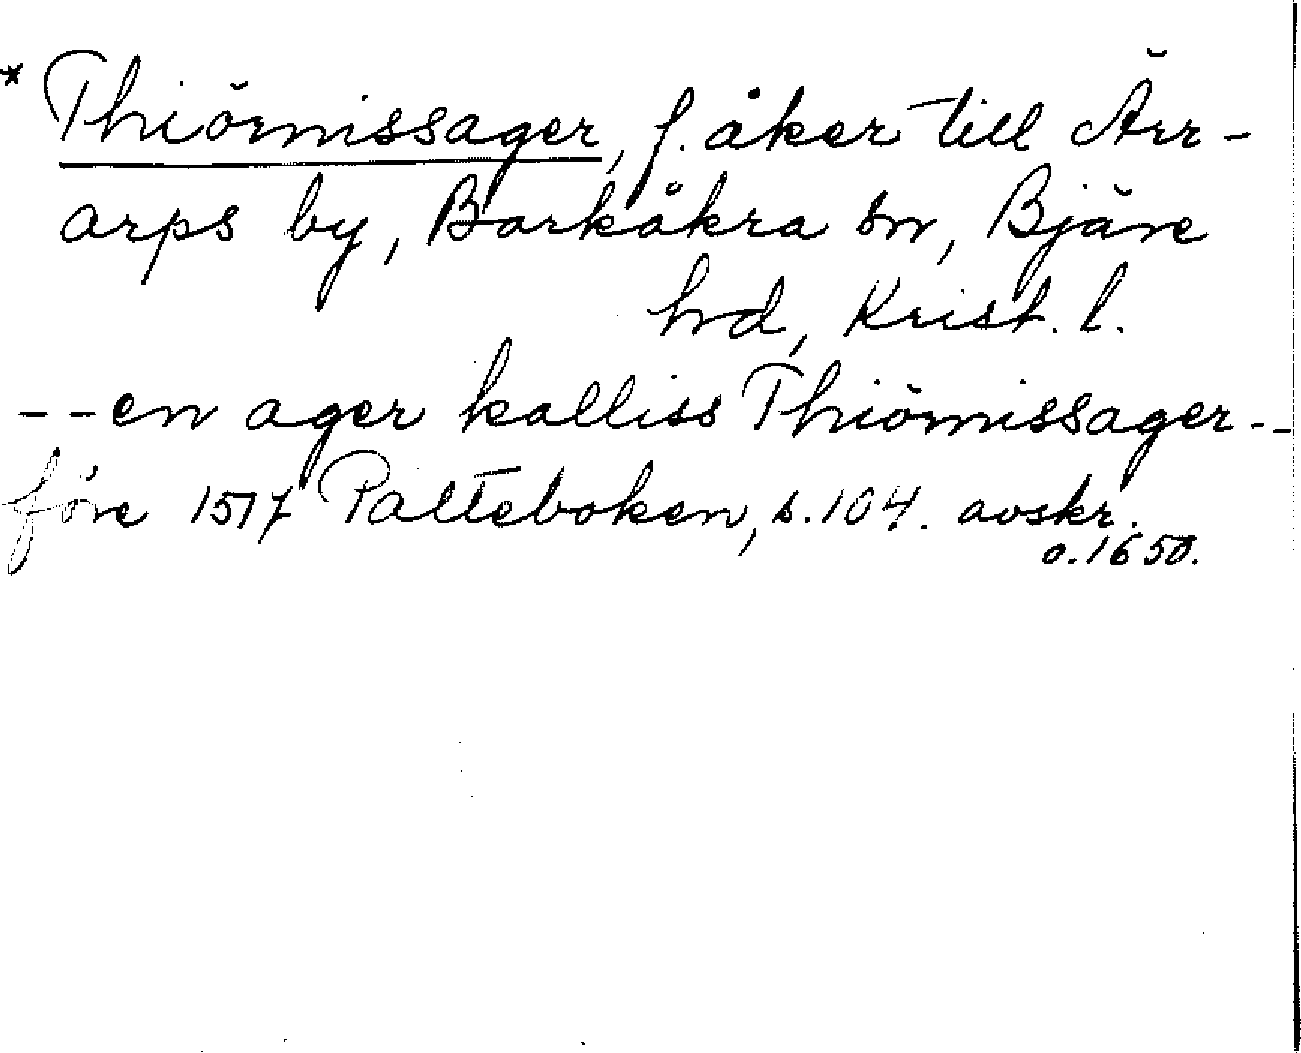 * Thiömissager, f. åker till Ärr-
arps by, Barkåkra sn, Bjäre
hd, Krist. l.
--en ager kalliss Thiömissager--
före 1517 Palteboken, s. 104. avskr.
o. 1650.